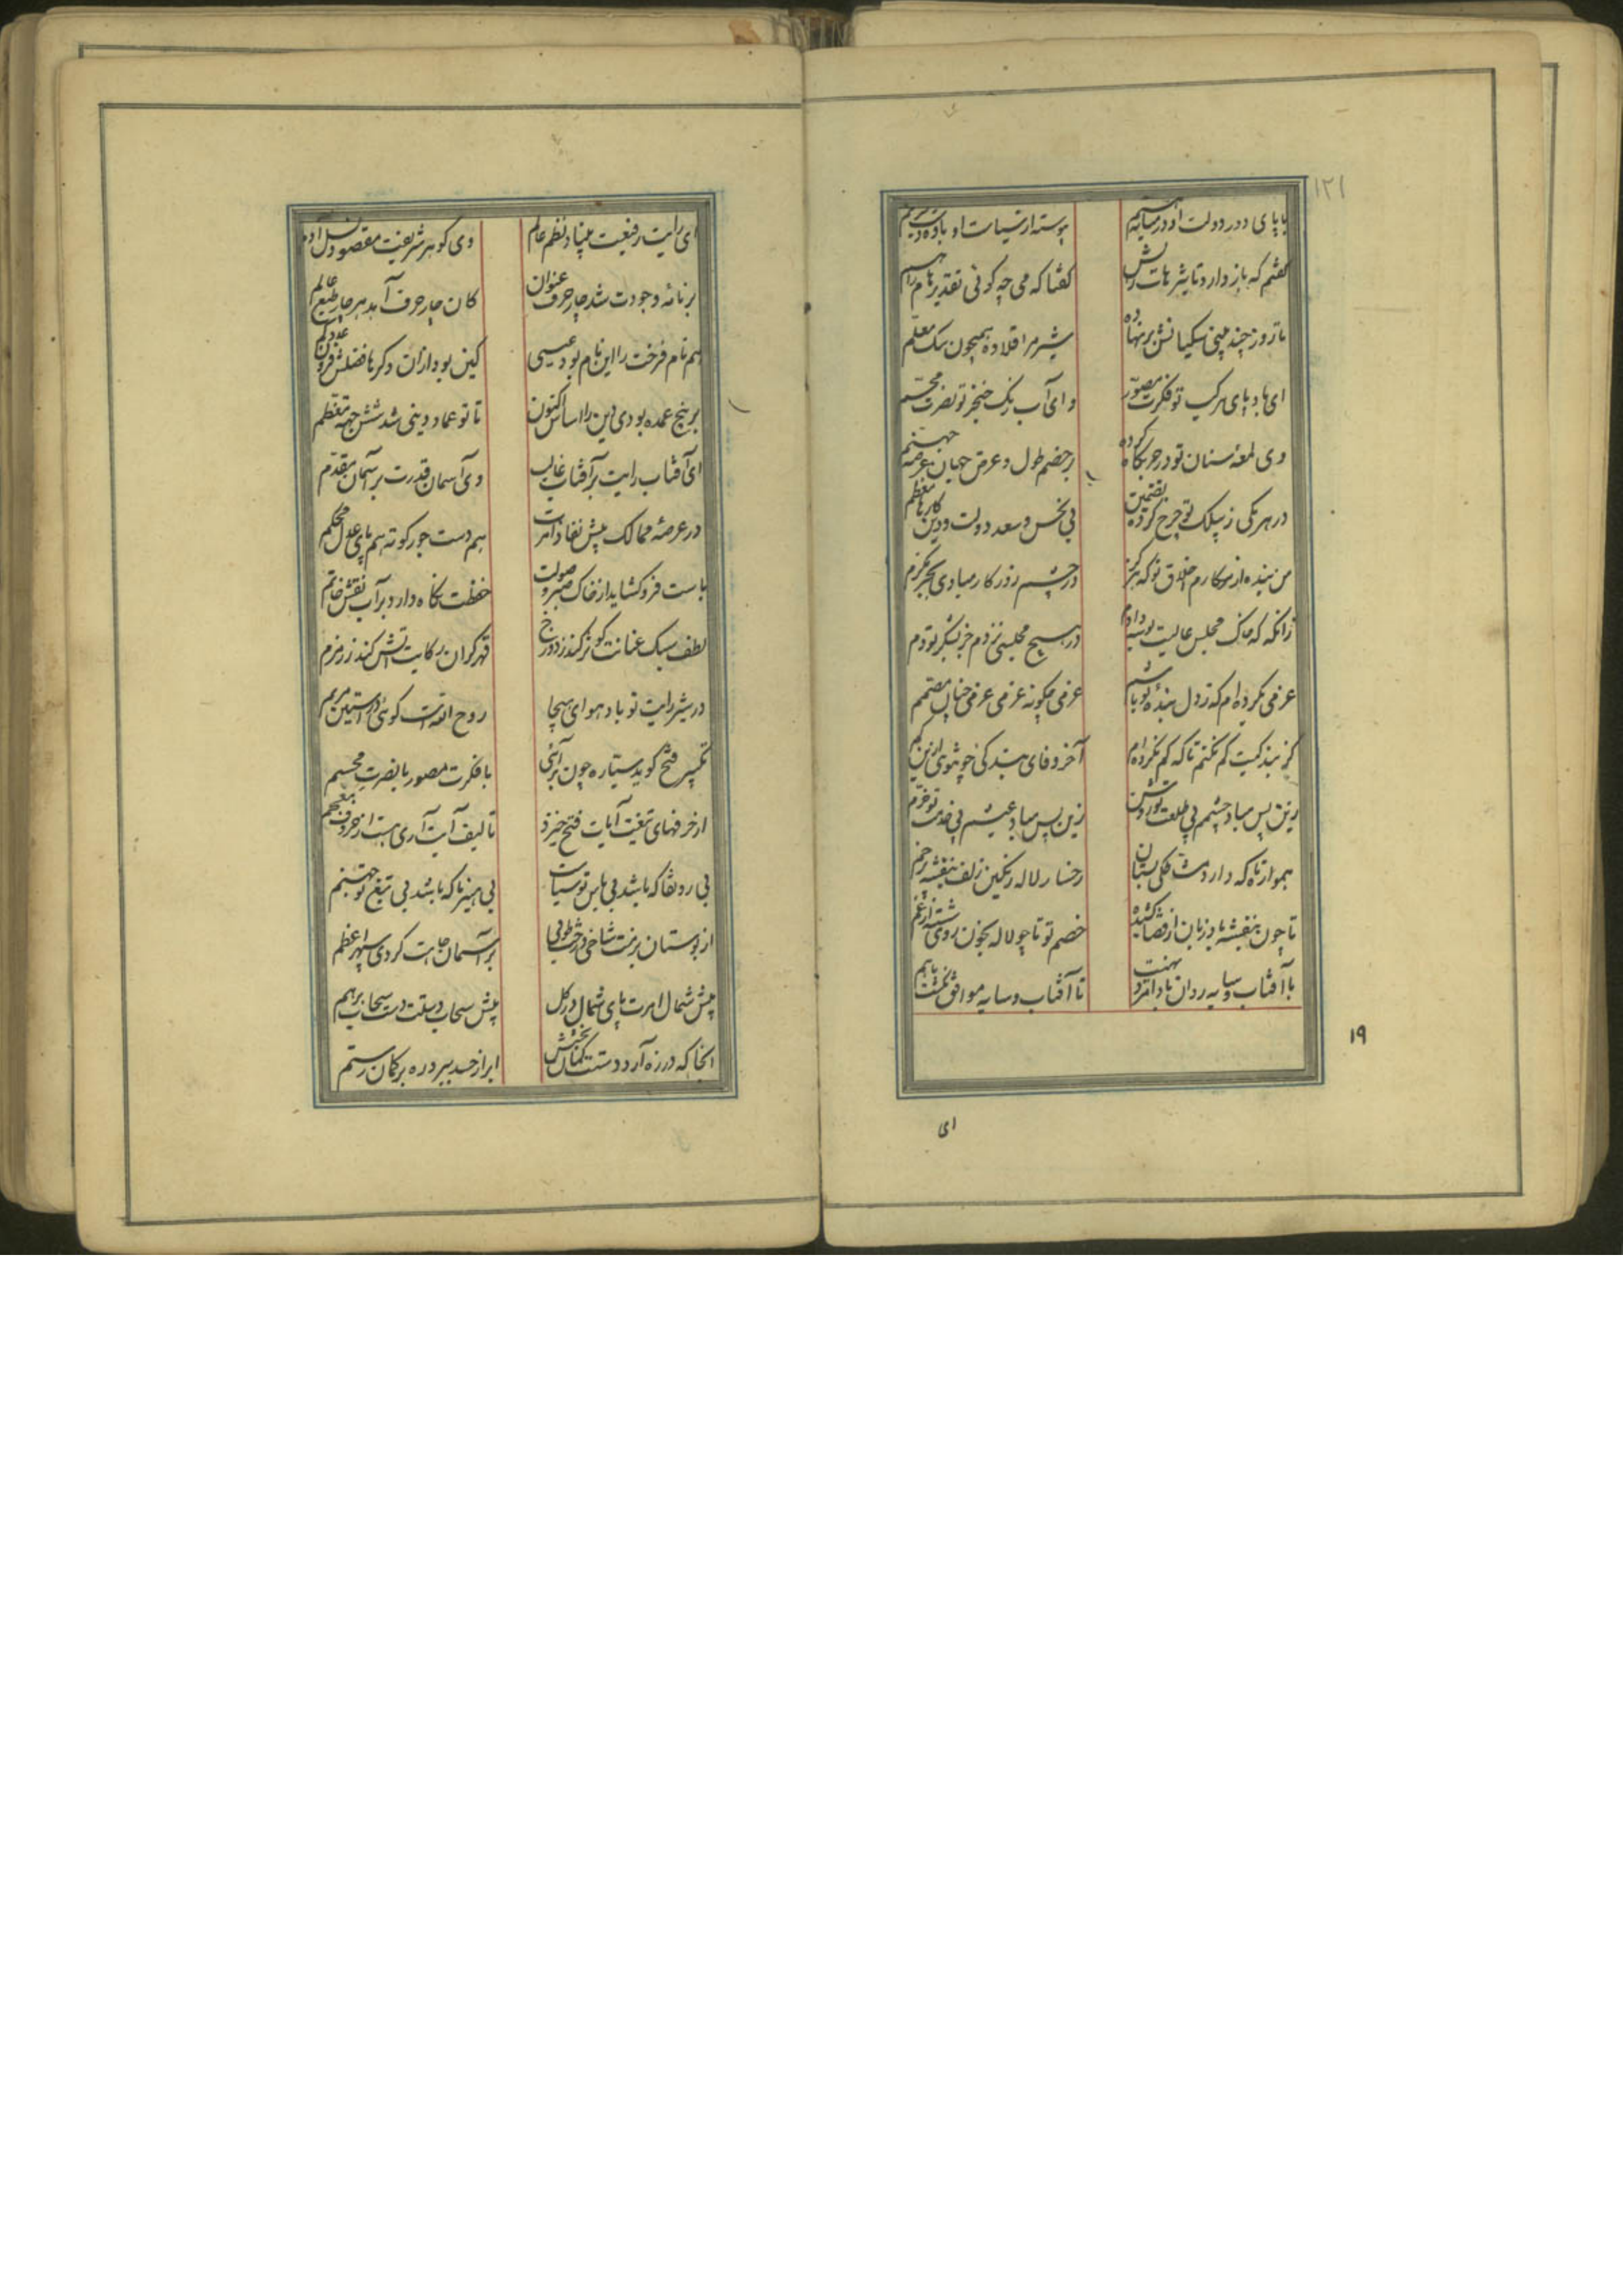 ۱۲۱
با پای دور دولت او در میانیم پیوسته از سیاست او باد
گفتم که باز دارد تاثیرهات گفتا که می چه گوئی تقدیرهام
تا روز چند بینی سگبانش برنهاده شیر مرا قلاده همچون سگ معلم
ای باد پای مرکب تو فکرت مصور وای آب رنگ خنجر تو نصرت مجسم
وی لمعه سنان تو در حربگاه کرده بر خصم طول و عرض جهان عرصه جهنم
در هر یکی ز پیلک تو چرخ کرده تضمین بی نحس و سعد دولت و دین کارها معظم
من بنده از مکارم اخلاق تو که هرگز در چشم روزگار مبادی بجز مکرم
زانگه که خاک مجلس عالیت بوسه دادم در هیچ مجلسی نزدم جز بشکر تو دم
عزمی بکرده‌ام که ز دل بنده تو باشم عزمی چگونه عزمی عزمی چنان مصمم
کز بندگیت کم نکنم تا که کم نگردم آخر وفای بندگی چو توی ازین کم
زین پس مباد چشمم بی طلعت تو روشن زین پس مباد عیشم بی خدمت تو خرم
هموار تا که دارد مشاطگی بستان رخسار لاله رنگین زلف بنفشه پر خم
تا چون بنفشه بادا زبان از قفا کشیده خصم تو تا چو لاله بخون روی شسته از غم
با آفتاب و سایه روان باد امر و نهیت تا آفتاب و سایه موافق نگشت با هم
۱۹
ای
ای رایت رفیعت بنیاد نظم عالم وی گوهر شریفت مقصود نسل آدم
بر نامه وجودت شد چار حرف عنوان کان چار حرف آمد بر چار طبع عالم
هم نام فرخت را این نام بود عیسی کین بود ازان دگر با فضلش فزون
بر پنج عمده بودی دین را اساس اکنون تا تو عماد دینی شد شش جهه معظم
ای آفتاب رایت بر آفتاب غالب وی آسمان قدرت بر آسمان مقدم
در عرصه ممالک پیش نفاذ امرت هم دست جور کوته هم پای عدل محکم
باست فرو گشاید از خاک صبر و صولت حفظت نگاه دارد بر آب نقش خاتم
لطف سبک عنانت کوثر کند ز دوزخ قهر گران رکابت آتش کند ز زمزم
در شیر رایت تو باد هوای هیجا روح الله است گوئی در آستین مریم
تکبیر فتح گوید ستاره چون برآئی با فکرت مصور با نصرت مجسم
از حرفهای تیغت آیات فتح خیزد تالیف آیت آری هست از حروف معجم
بی ردتفا که باشد بی باس تو سیاست بی هیزما که باشد بی تیغ تو جهنم
از بوستان بزمت شاخی درخت طوبی بر آسمان جاهت گردی سپهر اعظم
پیش شمال امرت پای شمال در گل پیش سحاب دستت دست سحاب بر هم
انجا که در زه آرد دست کمان بخشش ابر از حسد ببرد زه بر کمان رستم